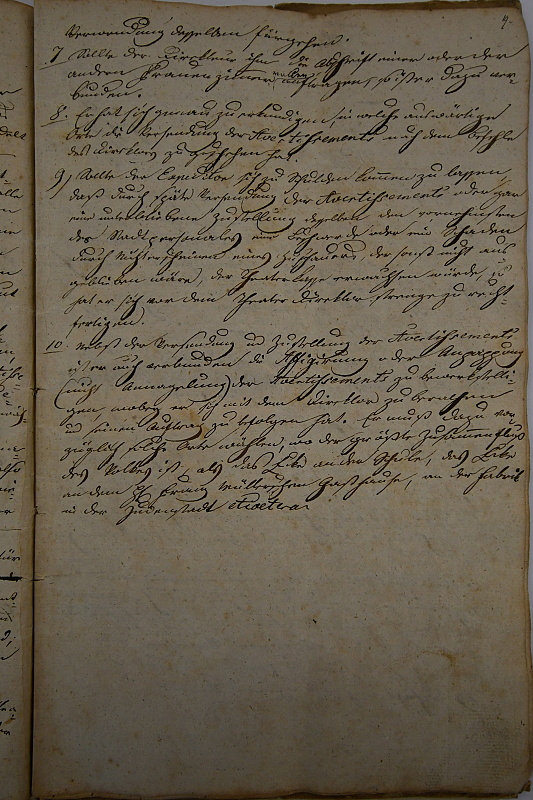 9.
Verwendung desselben fürgehen.
7 Sollte der Direkteur ihm zu Abschrift einer oder der
andern auftragen, so ist er dazu ver-
bunden.
8. Er hat sich genau zu erkundigen, in welche auswärtige
Orte die Versendung der Avertissements nach dem Befehle
des Direktors zu geschehen hat.
9) Sollte der Expeditor sich zu Schulden kommen zu lassen,
daß durch späte Versendung der Avertissements oder gar
eine unterbliebene Zustellung derselben dem vornehmsten
des Stadtpersonales eine Beschwerde oder ein Schaden
durch Nichterscheinen eines Zuschauers, der sonst nicht aus
geblieben wäre, der Theaterkasse erwachsen würde, so
hat er sich vor dem Theater Direktor strenge zu recht-
fertigen.
10. Nebst der Versendung und Zustellung der Avertissements
ist er auch verbunden die Affigirung oder Anpappung
(nicht Annagelung) der Avertissements zu bewerkstelli-
gen, wobey er sich mit dem Direktor zu berathen
und seinen Auftrag zu befolgen hat. Er muß dazu vor-
züglich solche Orte wählen, wo der größte Zusammenfluß
des Volkes ist, als das Eke an der Schule, das Eke
an dem Gasthause, an der Fabrik
in der Judenstadt etc